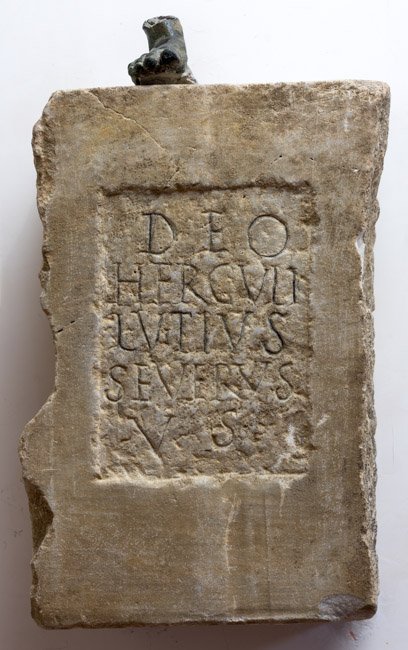 DEO
HERCVLI
LVTIVS
SEVERVS
·V·S·